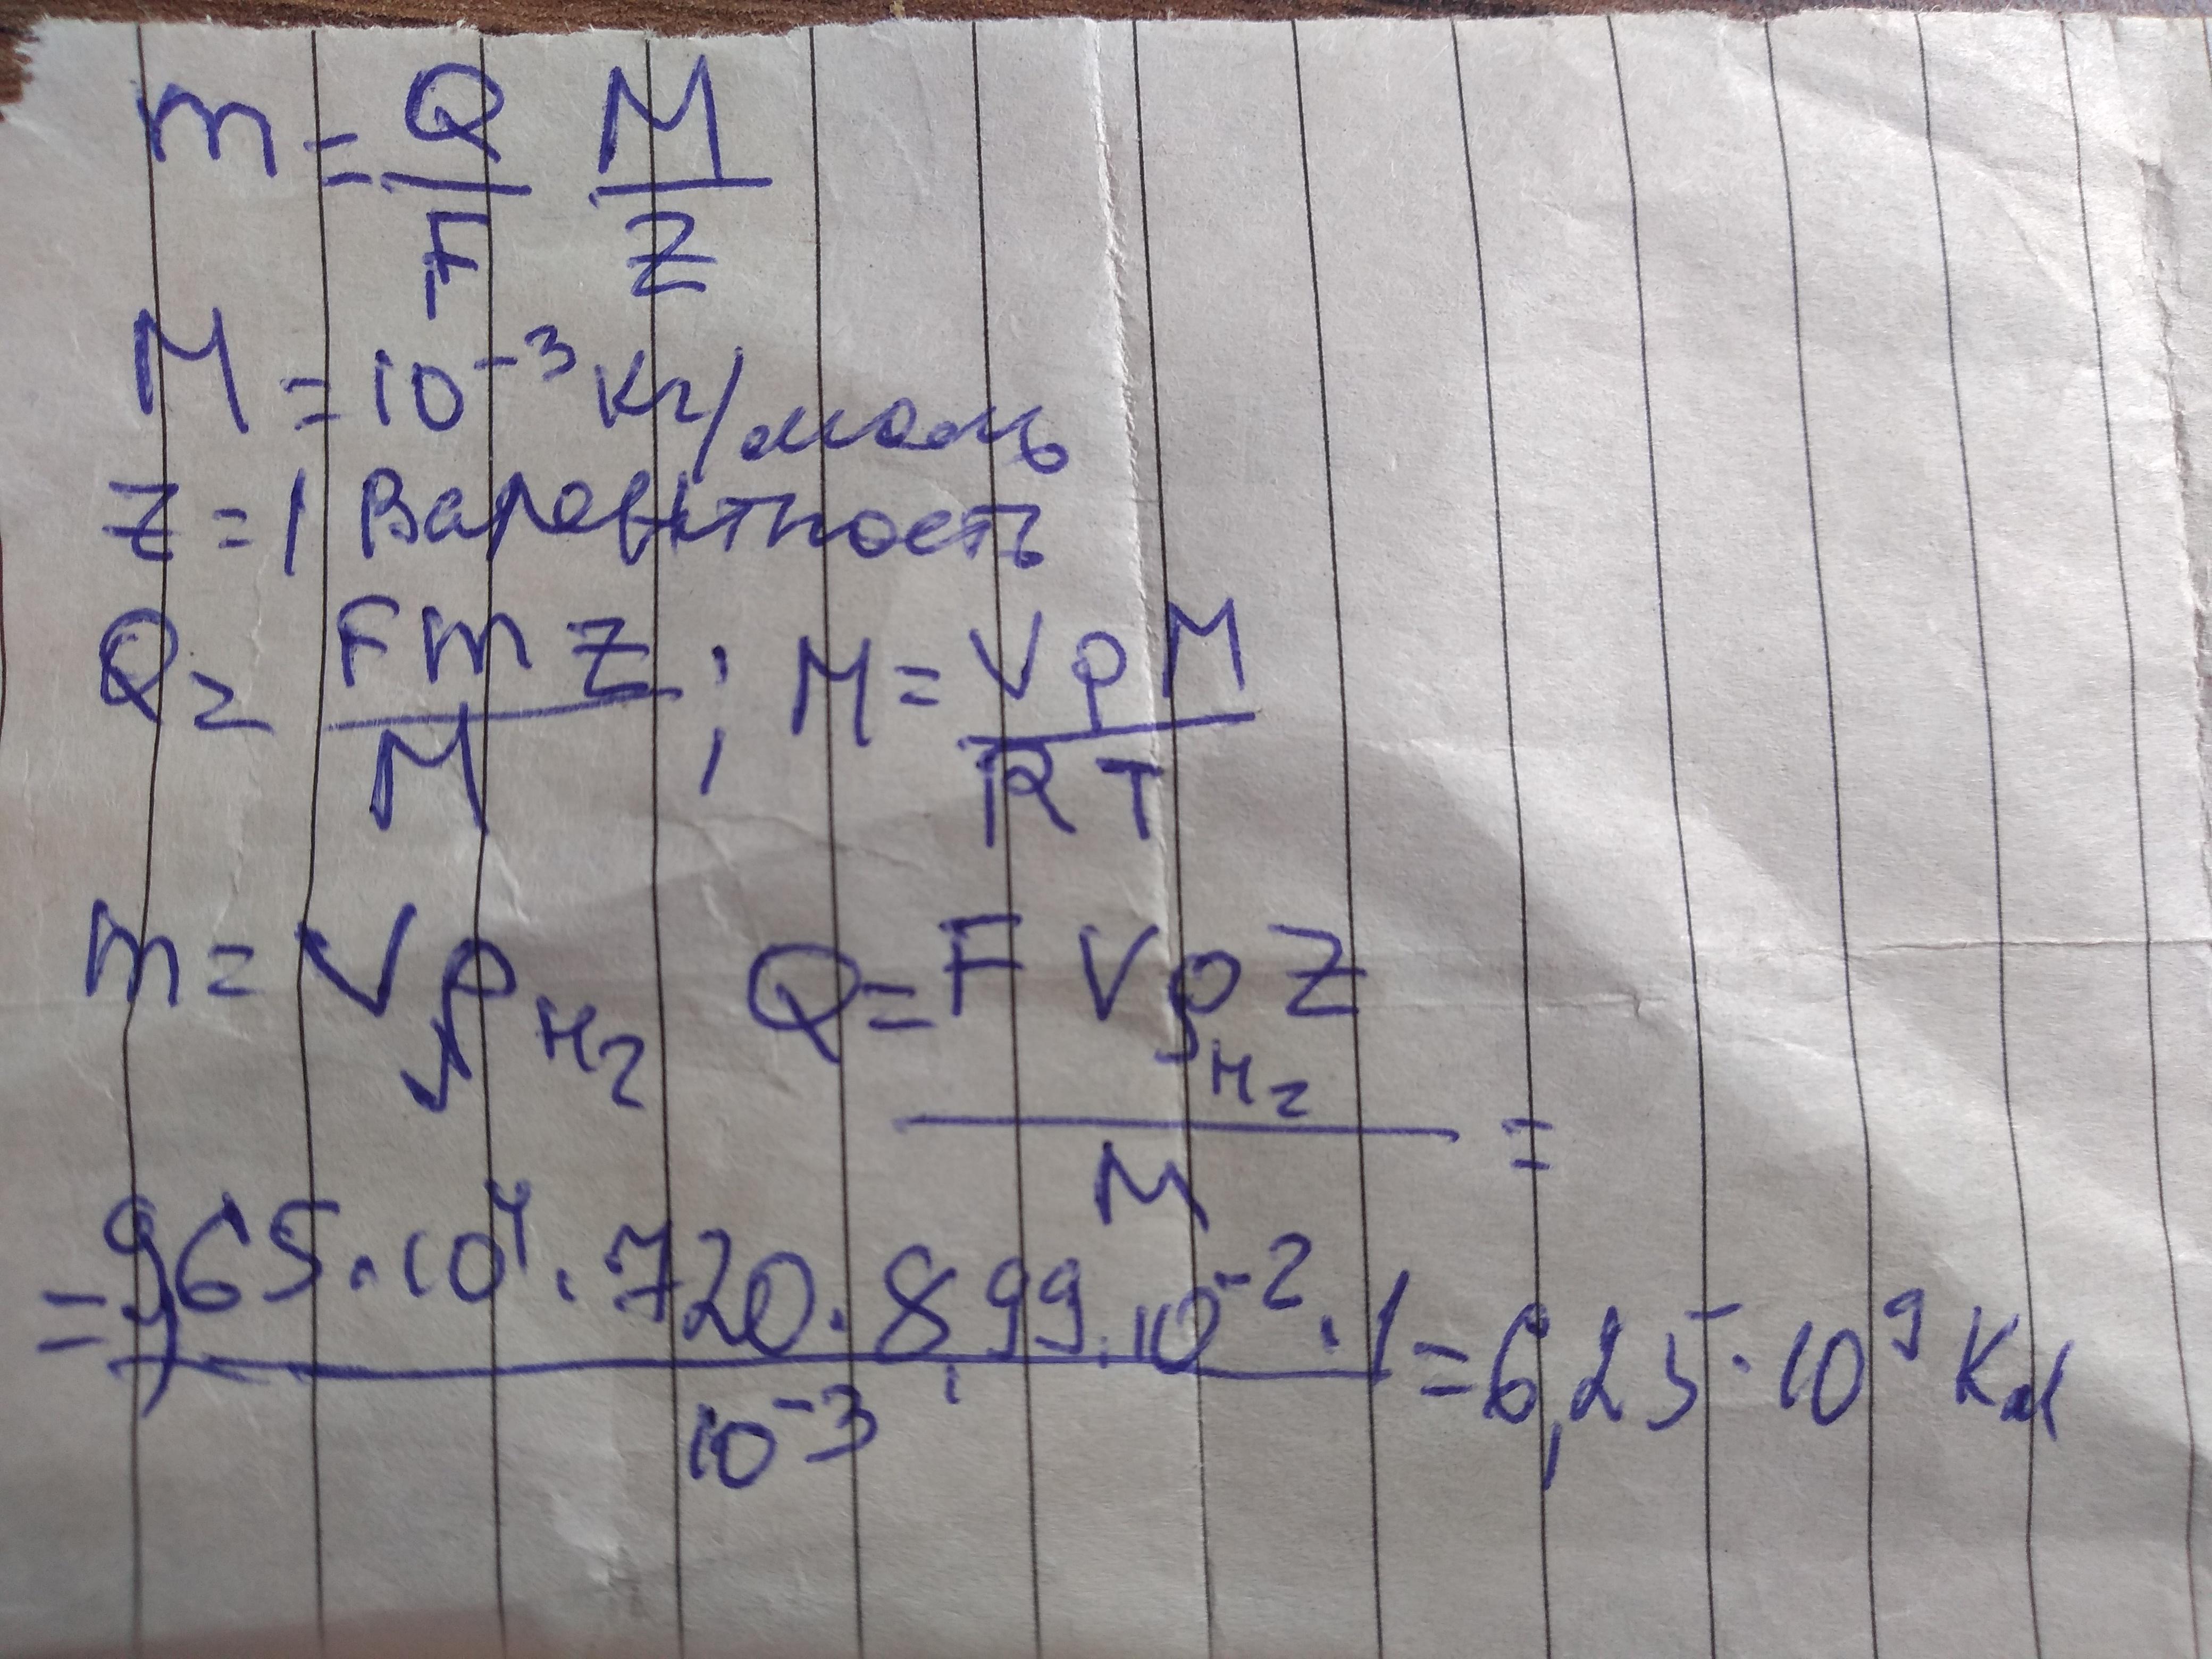 m = Q/F M/Z
M = 10⁻³ кг/моль
Z = 1 Валентность
Q = FmZ/M ; M = VpM/RT
m = Vρ_H₂ Q = FVρ_H₂Z/M =
= 9,65·10⁴·720·8,99·10⁻²·1/10⁻³ = 6,25·10⁹ Кл